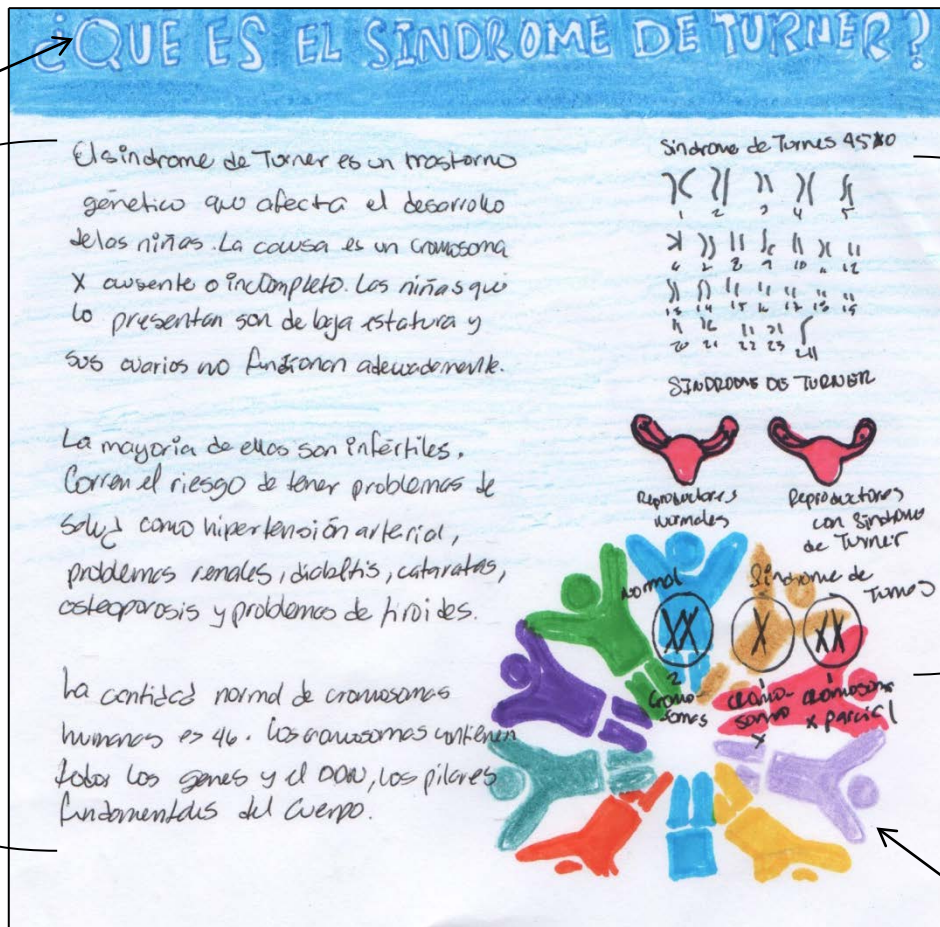 ¿QUE ES EL SINDROME DE TURNER?
El sindrome de Turner es un trastorno
genetico que afecta el desarrollo
de las niñas. La causa es un cromosoma
X ausente o incompleto. Las niñas que
lo presentan son de baja estatura y
sus ovarios no funcionan adecuadamente.
La mayoria de ellas son infértiles.
Corren el riesgo de tener problemas de
salud como hipertensión arterial,
problemas renales, diabetis, cataratas,
osteoporosis y problemas de tiroides.
La cantidad normal de cromosomas
humanos es 46. Los cromosomas contienen
todos los genes y el ADN, los pilares
fundamentales del cuerpo.
Sindrome de Turner 45X0
1 2 3 4 5
6 7 8 9 10 11 12
13 14 15 16 17 18 19
20 21 22 23 24
SINDROME DE TURNER
Reproductores
normales
Reproductores
con Sindrome
de Turner
Normal
Sindrome de
Turner
XX
X
XX
2
cromo-
somas
1
cromo-
somo
X
1
cromosoma
x parcial